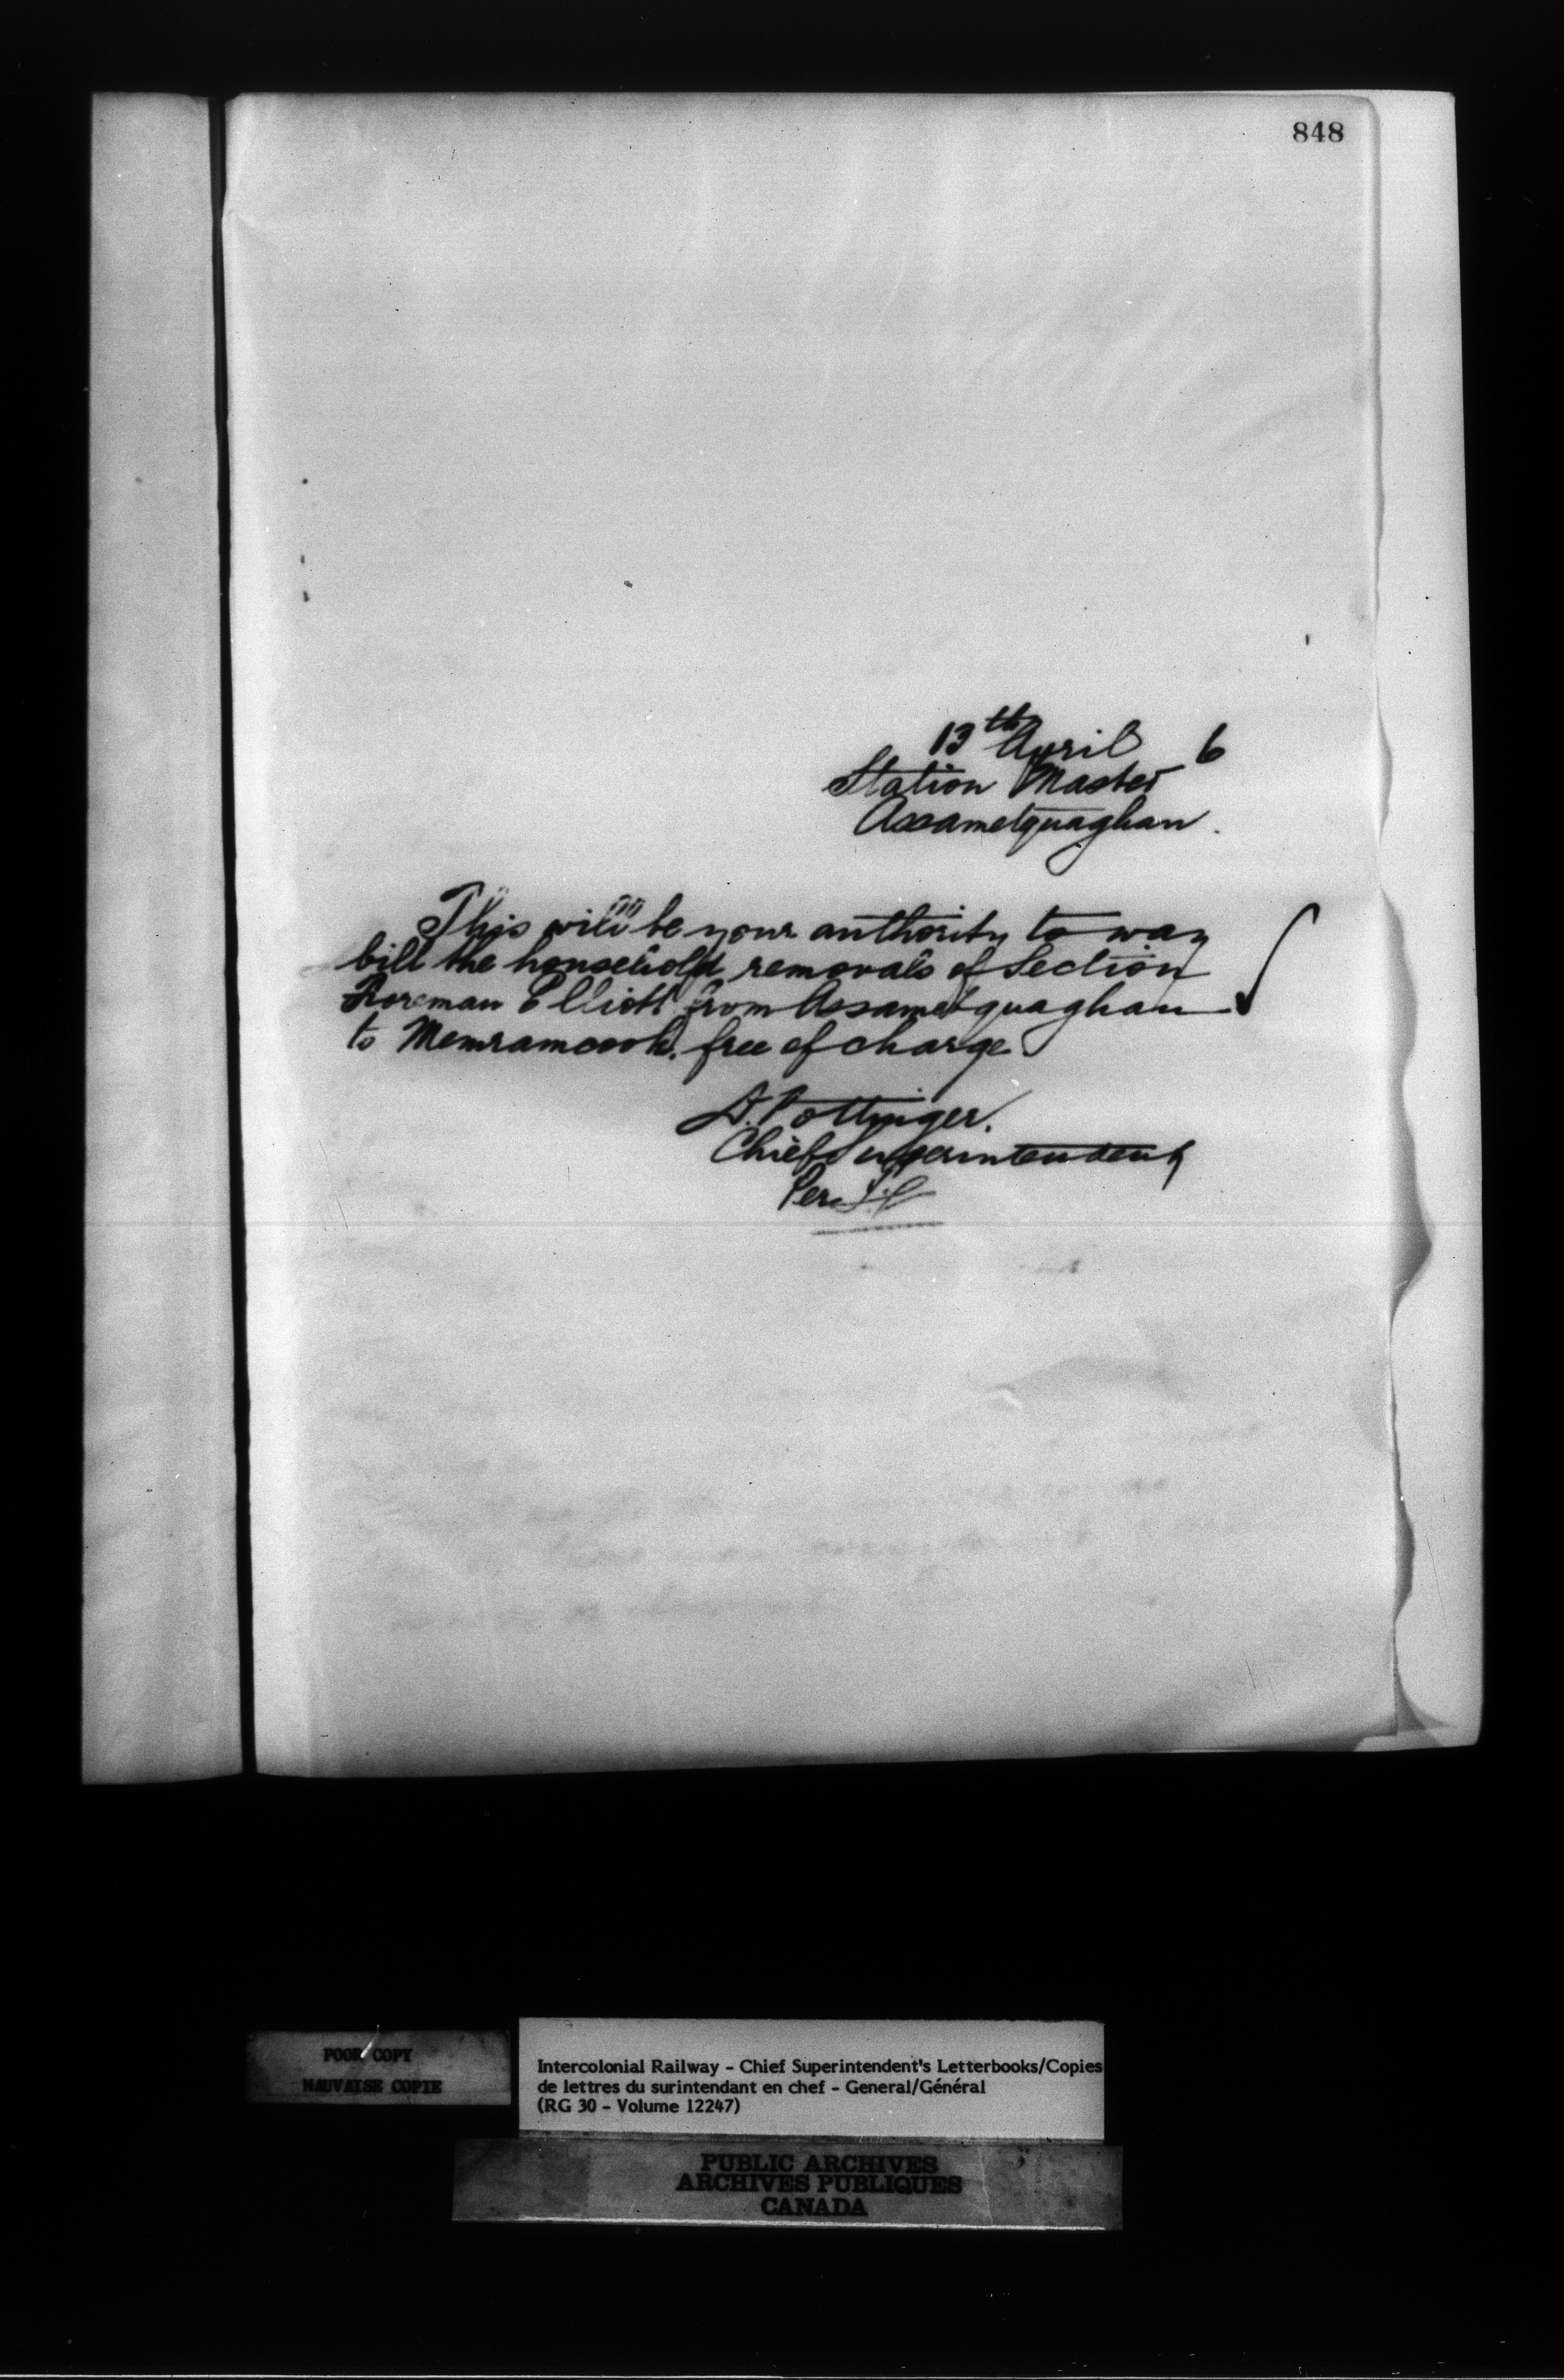 848
13th April 6
Station Master
Assametquaghan.
This will be your authority to way
bill the household removals of Section
Foreman Elliott from Assametquaghan
to Memramcook, free of charge.
D. Pottinger.
Chief Superintendent
Per
POOR COPY
MAUVAISE COPIE
Intercolonial Railway - Chief Superintendent's Letterbooks/Copies
de lettres du surintendant en chef - General/Général
(RG 30 - Volume 12247)
PUBLIC ARCHIVES
ARCHIVES PUBLIQUES
CANADA